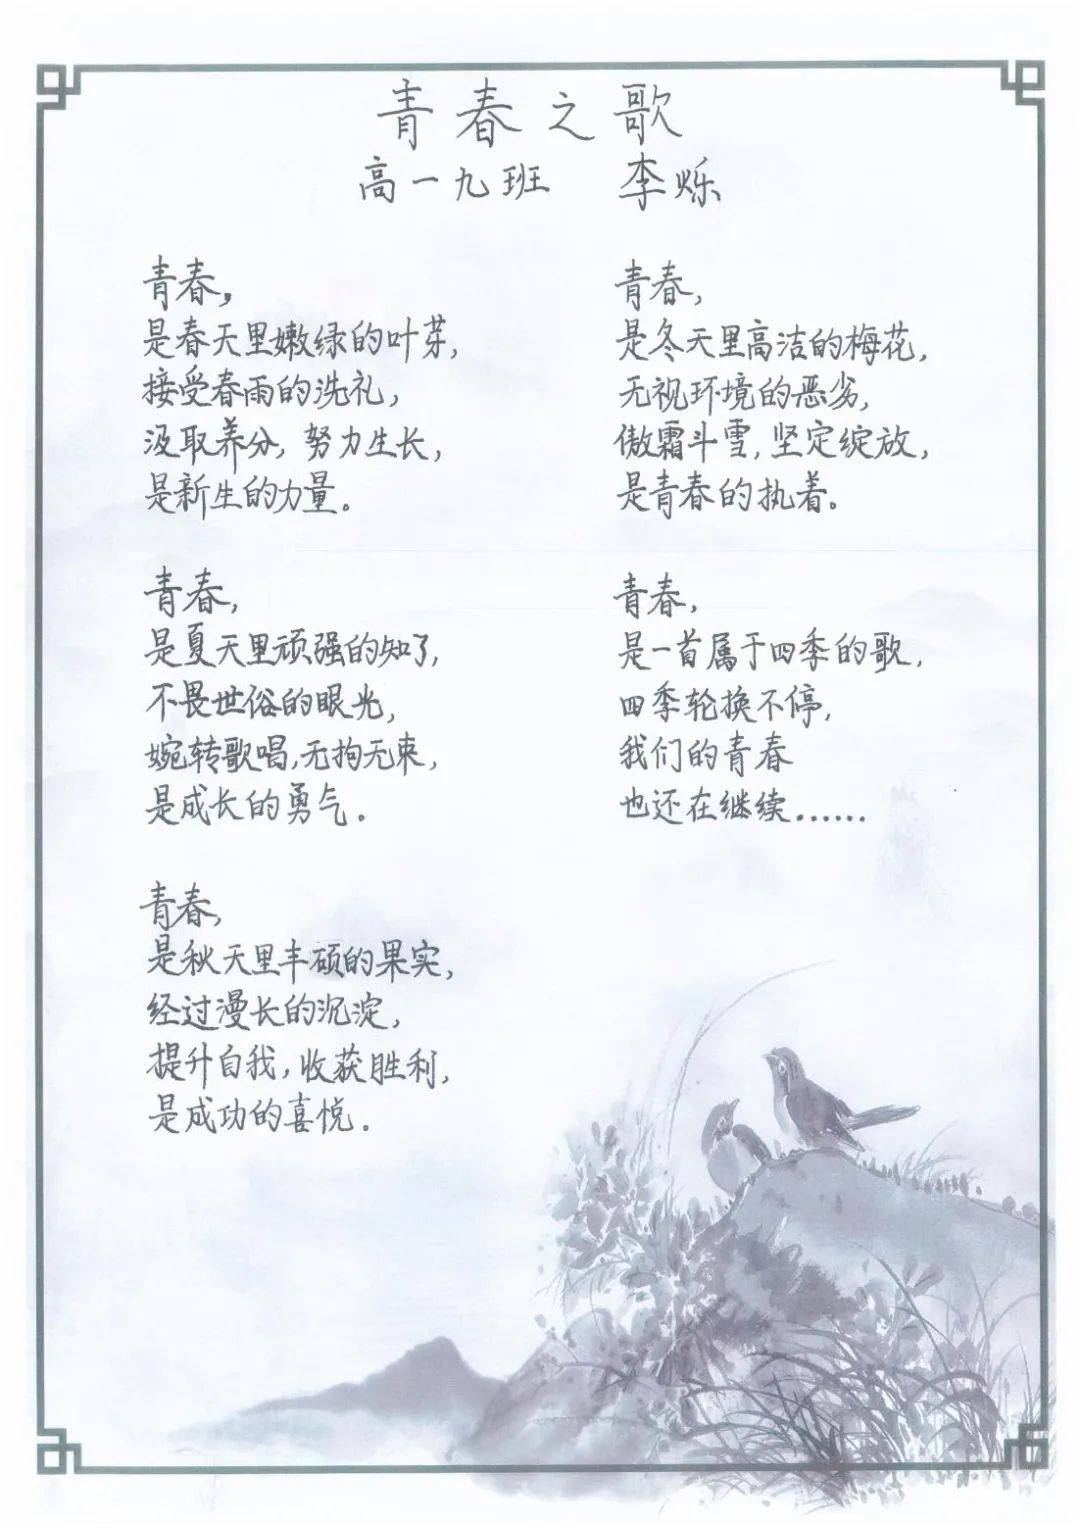 青春之歌
高一九班 李烁
青春，
是春天里嫩绿的叶芽，
接受春雨的洗礼，
汲取养分，努力生长，
是新生的力量。
青春，
是夏天里顽强的知了，
不畏世俗的眼光，
婉转歌唱，无拘无束，
是成长的勇气。
青春，
是秋天里丰硕的果实，
经过漫长的沉淀，
提升自我，收获胜利，
是成功的喜悦.
青春，
是冬天里高洁的梅花，
无视环境的恶劣，
傲霜斗雪，坚定绽放，
是青春的执着。
青春，
是一首属于四季的歌，
四季轮换不停，
我们的青春
也还在继续......